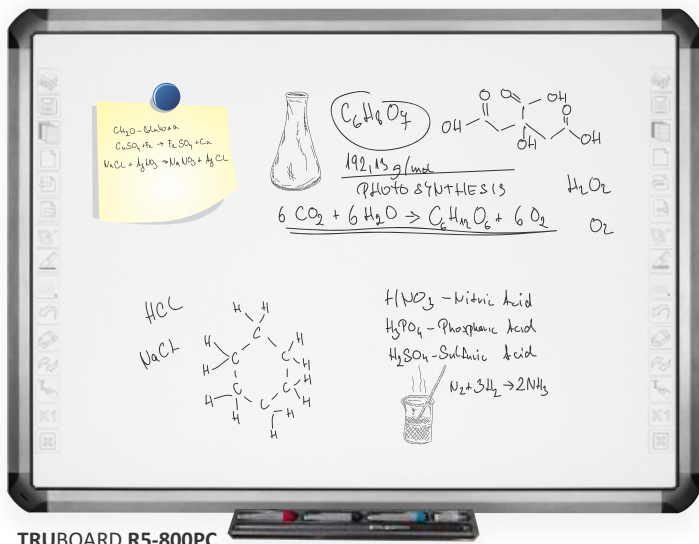 CH2O - Glukosa
CuSO4 + Fe → FeSO4 + Cu
NaCl + AgNO3 → NaNO3 + AgCl
C6H8O7
192,13 g/mol
PHOTOSYNTHESIS
6 CO2 + 6 H2O → C6H12O6 + 6 O2
O O OH
OH O
OH OH
H2O2
O2
HCL
NaCL
H H
C
H C C H
H H
H C C H
H C H
H
H
HNO3 - Nitric Acid
H3PO4 - Phosphoric Acid
H2SO4 - Sulfuric Acid
N2 + 3H2 → 2NH3
TRUBOARD R5-800PC